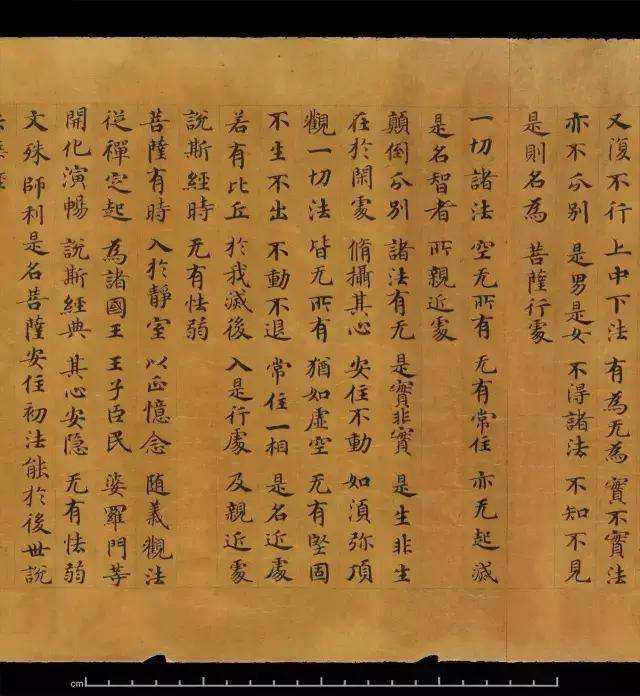 又復不行 上中下法 有為无為 實不實法
亦不分別 是男是女 不得諸法 不知不見
是則名為 菩薩行處
一切諸法 空无所有 无有常住 亦无起滅
是名智者 所親近處
顛倒分別 諸法有无 是實非實 是生非生
在於閑處 脩攝其心 安住不動 如湏弥頂
觀一切法 皆无所有 猶如虛空 无有堅固
不生不出 不動不退 常住一相 是名近處
若有比丘 於我滅後 入是行處 及親近處
說斯經時 无有怯弱
菩薩有時 入於靜室 以正憶念 随義觀法
從禪定起 為諸國王 王子臣民 婆羅門等
開化演暢 說斯經典 其心安隐 无有怯弱
文殊師利是名菩薩安住初法能於後世說
cm